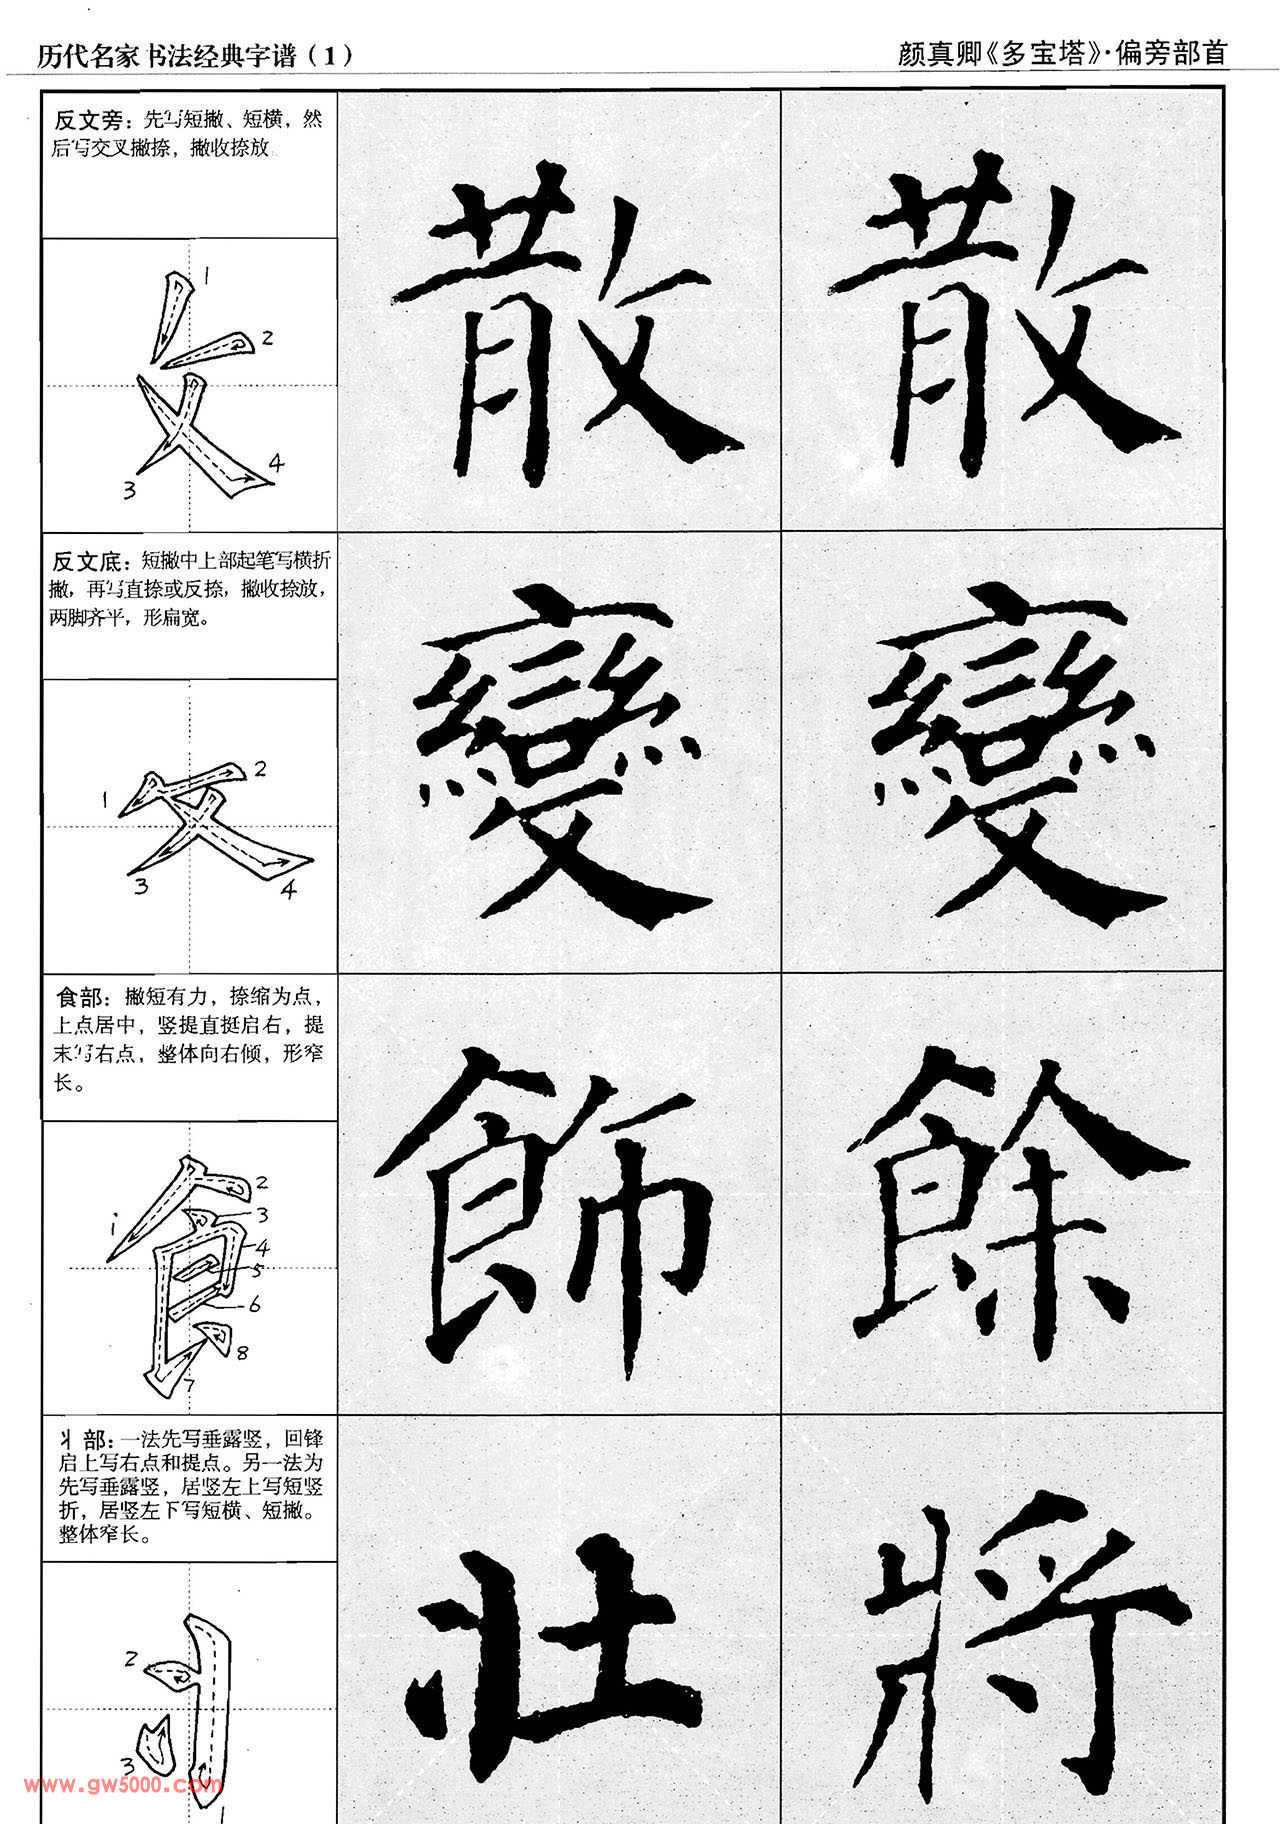 历代名家书法经典字谱（1）
颜真卿《多宝塔》·偏旁部首
反文旁：先写短撇、短横，然
后写交叉撇捺，撇收捺放
1
2
3
4
散
散
反文底：短撇中上部起笔写横折
撇，再写直捺或反捺，撇收捺放，
两脚齐平，形扁宽。
1
2
3
4
變
變
食部：撇短有力，捺缩为点，
上点居中，竖提直挺启右，提
末写右点，整体向右倾，形窄
长。
1
2
3
4
5
6
7
8
飾
餘
丬部：一法先写垂露竖，回锋
启上写右点和提点。另一法为
先写垂露竖，居竖左上写短竖
折，居竖左下写短横、短撇。
整体窄长。
2
3
1
壯
將
www.gw5000.com